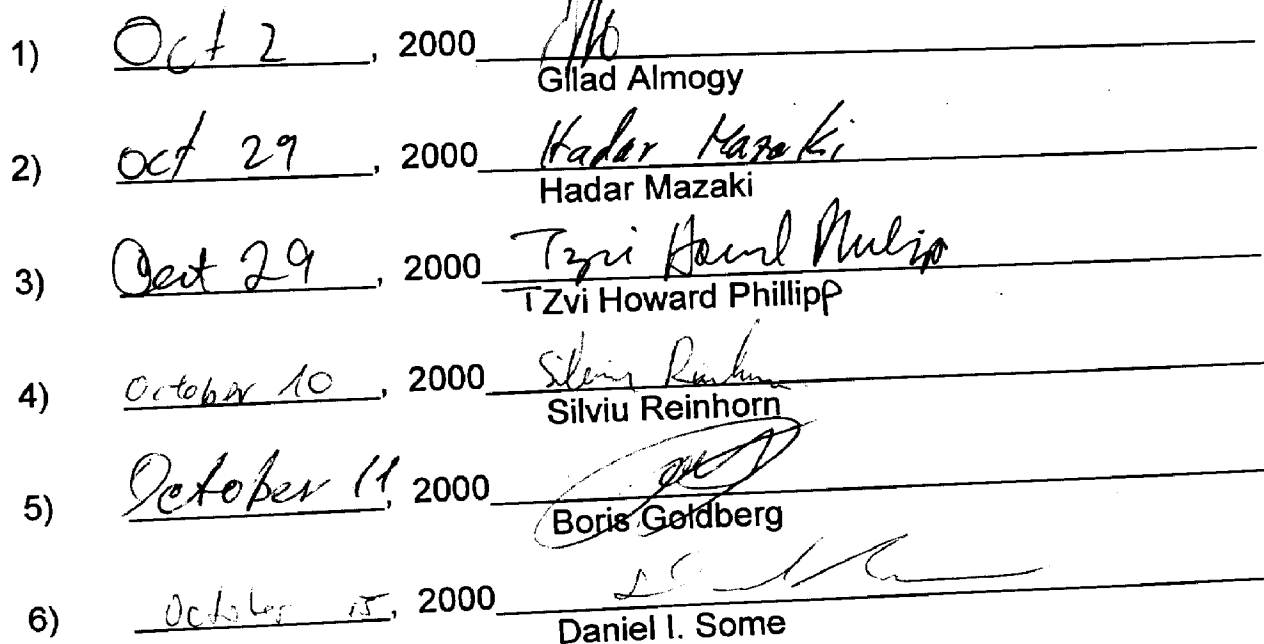 1) Oct 2, 2000
Gilad Almogy
2) oct 29, 2000 Hadar Mazaki
Hadar Mazaki
3) Oct 29, 2000 Tzvi Howard Phillipp
TZvi Howard Phillipp
4) October 10, 2000 Silviu Reinhorn
Silviu Reinhorn
5) October 11, 2000
Boris Goldberg
6) October 15, 2000
Daniel I. Some